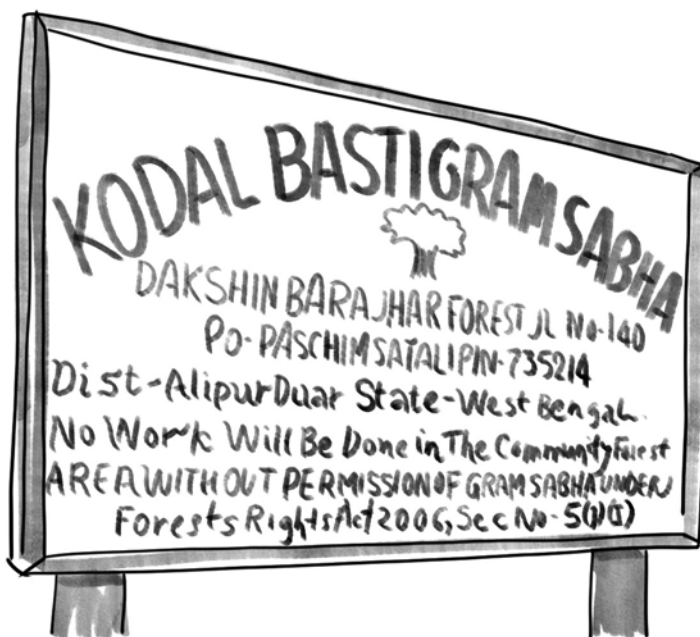 KODAL BASTI GRAM SABHA
DAKSHIN BARAJHAR FOREST JL No-140
Po-PASCHIM SATALI PIN-735214
Dist-AlipurDuar State-West Bengal.
No Work Will Be Done in The Community Forest
AREA WITHOUT PERMISSION OF GRAM SABHA UNDER
Forests Rights Act 2006, Sec No-5(1)(I)